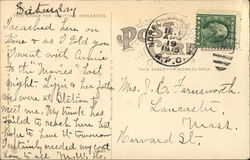 Saturday
SPACE FOR WRITING MESSAGES
I reached here on
time as I told you
I went with Annie
to the "Movies" last
night. Lizzie & her father
and were at Station to
meet me. My trunk has
failed to reach here but
hope to have it tomorrow
Certainly needed my coat
Love to all. M.
POST CARD
R.P.O.
THIS SPACE FOR ADDRESS ONLY
Mrs. J. C. Farnsworth,
Lancaster,
Mass.
Harvard St.